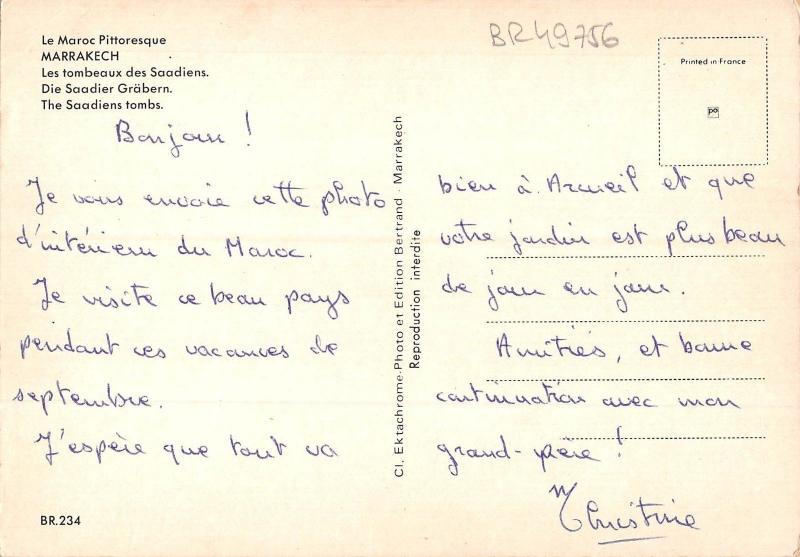 Le Maroc Pittoresque
MARRAKECH
Les tombeaux des Saadiens.
Die Saadier Gräbern.
The Saadiens tombs.
BR49756
Printed in France
Bonjour !
Je vous envoie cette photo
d'intérieur du Maroc.
Je visite ce beau pays
pendant ces vacances de
septembre.
J'espère que tout va
BR.234
Cl. Ektachrome-Photo et Edition Bertrand - Marrakech
Reproduction interdite
bien à Arcueil et que
votre jardin est plus beau
de jour en jour.
Amitiés, et bonne
continuation avec mon
grand-père !
Christine